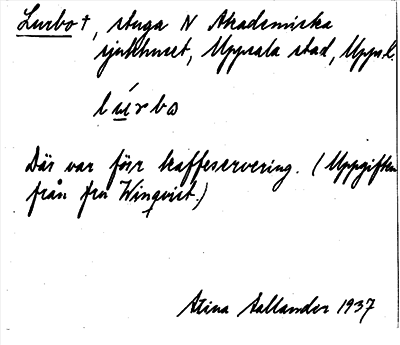 Lurbo †, stuga N Akademiska
sjukhuset, Uppsala stad, Uppl.
lúrbo
Där var förr kaffeservering. (Uppgiften
från fru Winqvist.)
Stina Sallander 1937